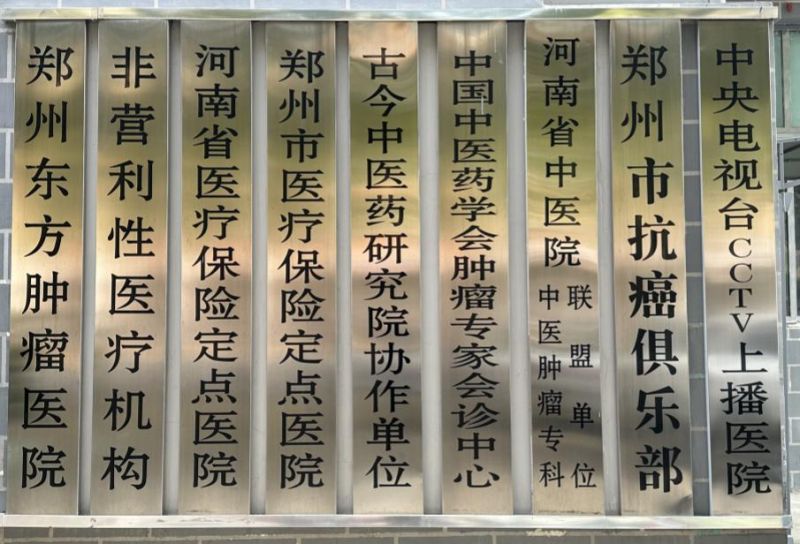 郑州东方肿瘤医院
非营利性医疗机构
河南省医疗保险定点医院
郑州市医疗保险定点医院
古今中医药研究院协作单位
中国中医药学会肿瘤专家会诊中心
河南省中医院
中医肿瘤专科
联盟单位
郑州市抗癌俱乐部
中央电视台CCTV上播医院